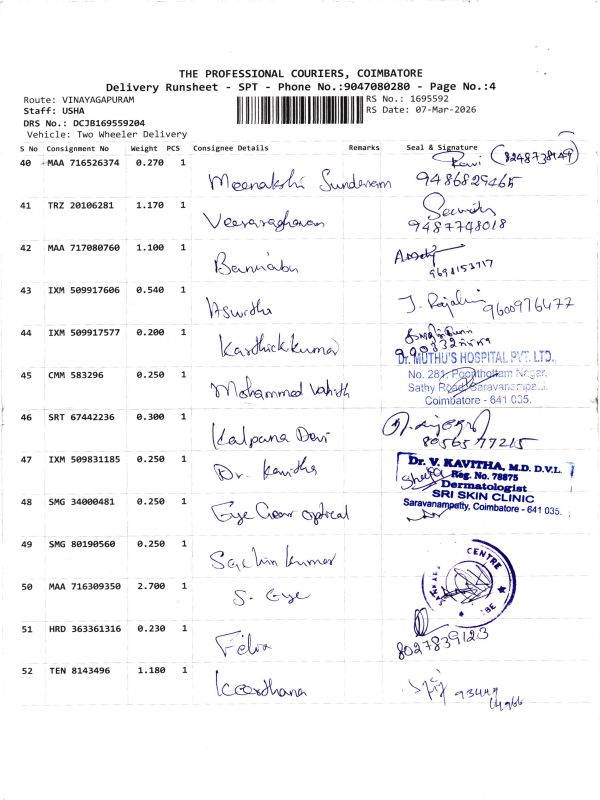 THE PROFESSIONAL COURIERS, COIMBATORE
Delivery Runsheet - SPT - Phone No.:9047080280 - Page No.:4
Route: VINAYAGAPURAM
RS No.: 1695592
Staff: USHA
RS Date: 07-Mar-2026
DRS No.: DCJB169559204
Vehicle: Two Wheeler Delivery
S No Consignment No Weight PCS Consignee Details Remarks Seal & Signature
40 MAA 716526374 0.270 1 Ravi (8248738149)
Meenakshi Sunderam 9486829465
41 TRZ 20106281 1.170 1
Veeraraghavan 9487748018
42 MAA 717080760 1.100 1
9698153717
43 IXM 509917606 0.540 1
Aswitha J. Rajalaxmi 9600976477
44 IXM 509917577 0.200 1
Karthickkumar
Dr. MUTHU'S HOSPITAL PVT. LTD.,
45 CMM 583296 0.250 1 No. 281, Poonthottam Nagar,
Mohammed Sathy Road, Saravanampa...
Coimbatore - 641 035.
46 SRT 67442236 0.300 1
Kalpana Devi 8056577215
47 IXM 509831185 0.250 1 Dr. V. KAVITHA, M.D. D.V.L.
Dr. Kavitha Reg. No. 78875
Dermatologist
48 SMG 34000481 0.250 1 SRI SKIN CLINIC
Eye Gear optical Saravanampatty, Coimbatore - 641 035.
49 SMG 80190560 0.250 1
Sachin kumar CENTRE
50 MAA 716309350 2.700 1
S. Eye
51 HRD 363361316 0.230 1
Felix 8027839123
52 TEN 8143496 1.180 1
Keerthana